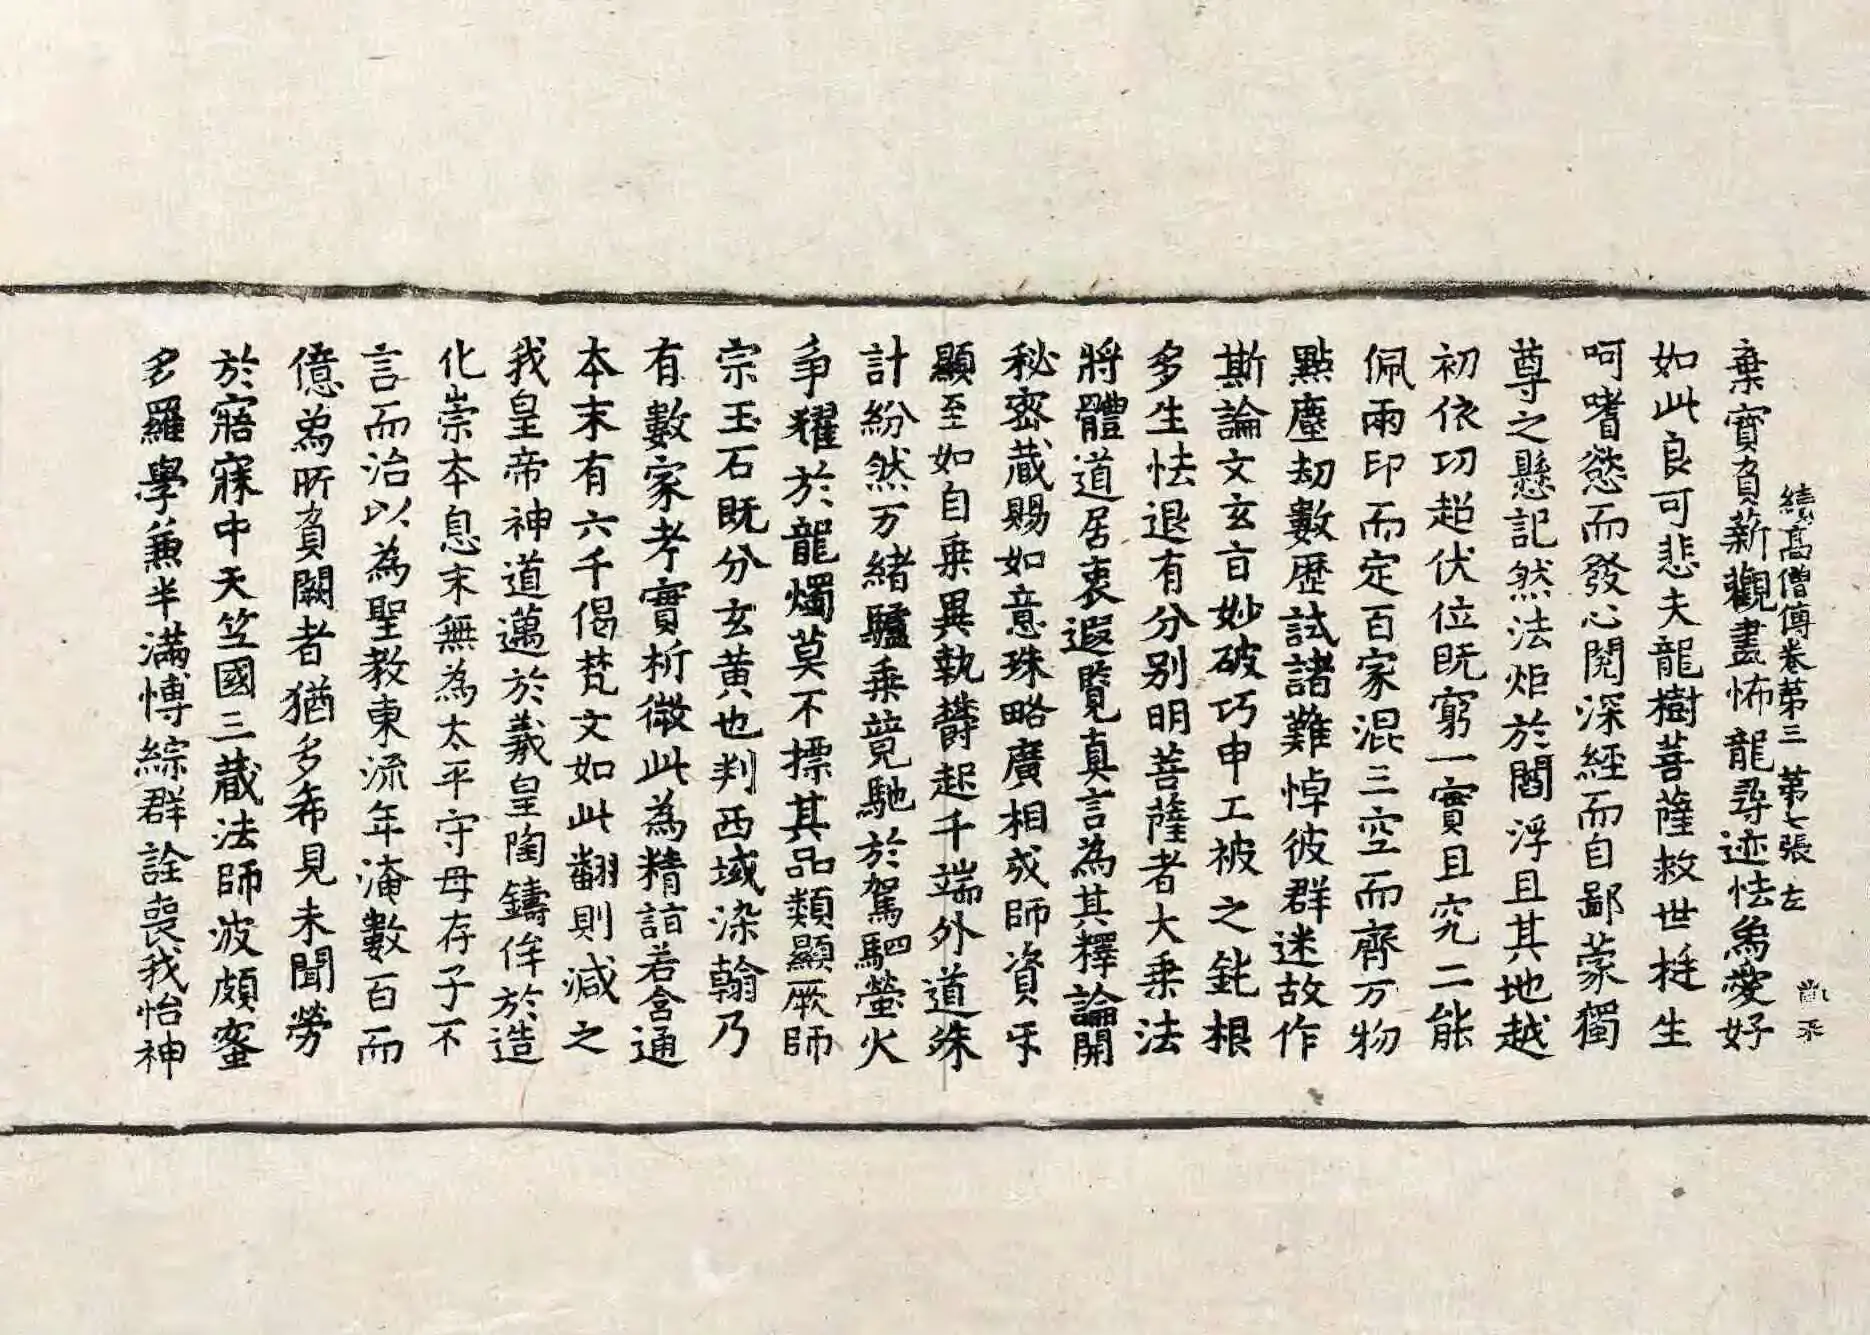 續高僧傳卷第三 第七張 左
棄寶負薪觀畫怖龍尋迹怯象愛好
如此良可悲夫龍樹菩薩救世挺生
呵嗜慾而發心閱深經而自鄙蒙獨
尊之懸記然法炬於閻浮且其地越
初依功超伏位既窮一實且究二能
佩兩印而定百家混三空而齊万物
點塵劫數歷試諸難悼彼群迷故作
斯論文玄旨妙破巧申工被之鈍根
多生怯退有分别明菩薩者大乗法
將體道居衷遐覽真言為其釋論開
秘密蔵賜如意珠略廣相成師資互
顯至如自乗異執欝起千端外道殊
計紛然万緒驢乗競馳於駕駟螢火
爭耀於龍燭莫不摽其品類顯厥師
宗玉石既分玄黄也判西域染翰乃
有數家考實析微此為精詣若含通
本末有六千偈梵文如此翻則減之
我皇帝神道邁於羲皇陶鑄侔於造
化崇本息末無為太平守母存子不
言而治以為聖教東流年淹數百而
億兆所負闕者猶多希見未聞勞
於寤寐中天竺國三蔵法師波頗蜜
多羅學兼半滿博綜群詮喪我怡神